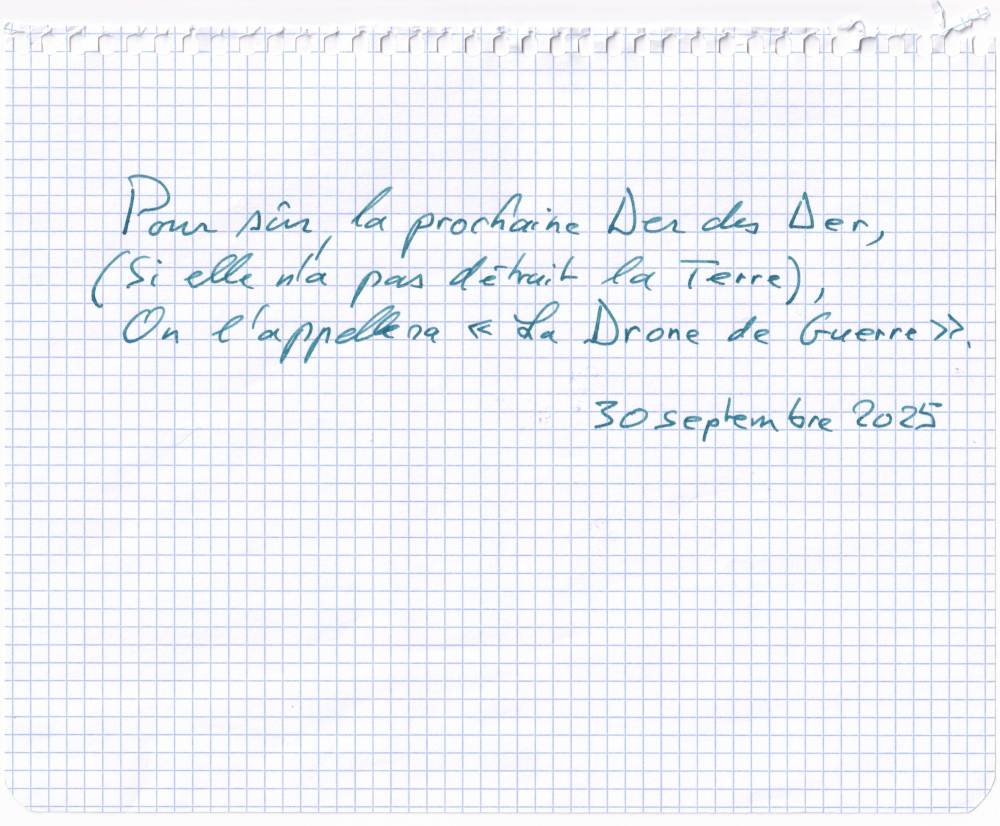 Pour sûr, la prochaine Der des Der,
(Si elle n'a pas détruit la Terre),
On l'appellera « La Drone de Guerre ».
30 septembre 2025